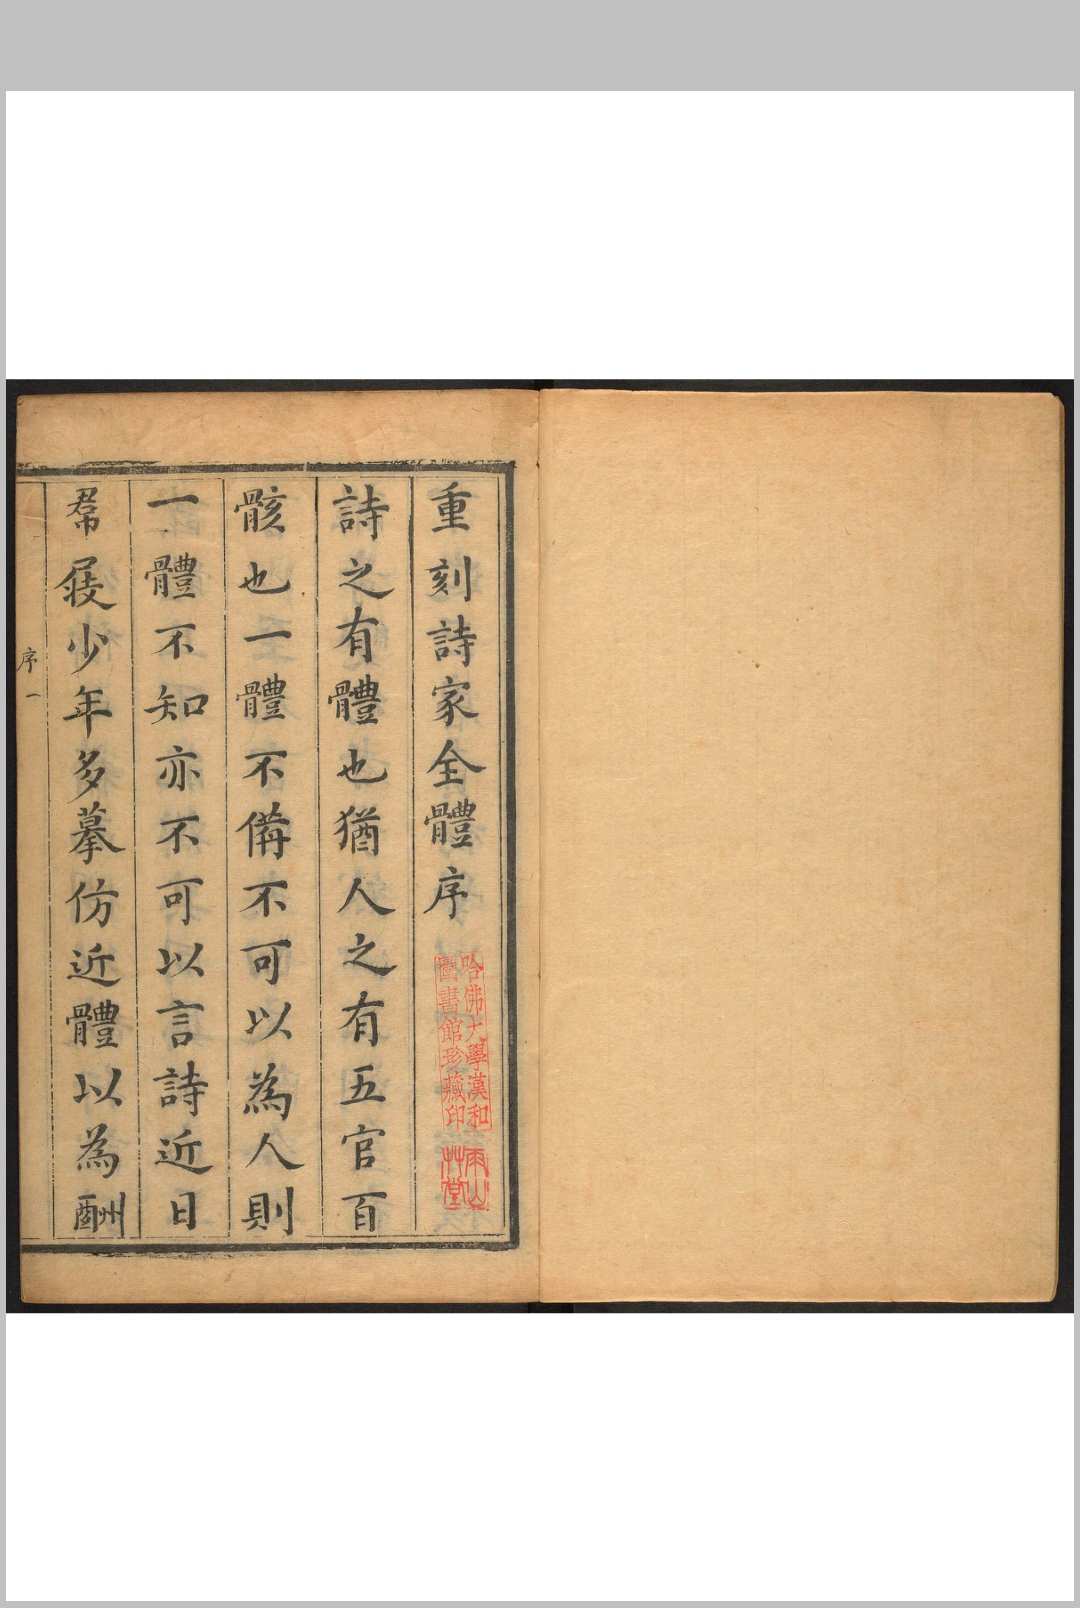 重刻詩家全體序
哈佛大學漢和
圖書館珍藏印
雨山
艸堂
詩之有體也猶人之有五官百
骸也一體不備不可以為人則
一體不知亦不可以言詩近日
帬屐少年多摹仿近體以為酬
序 一